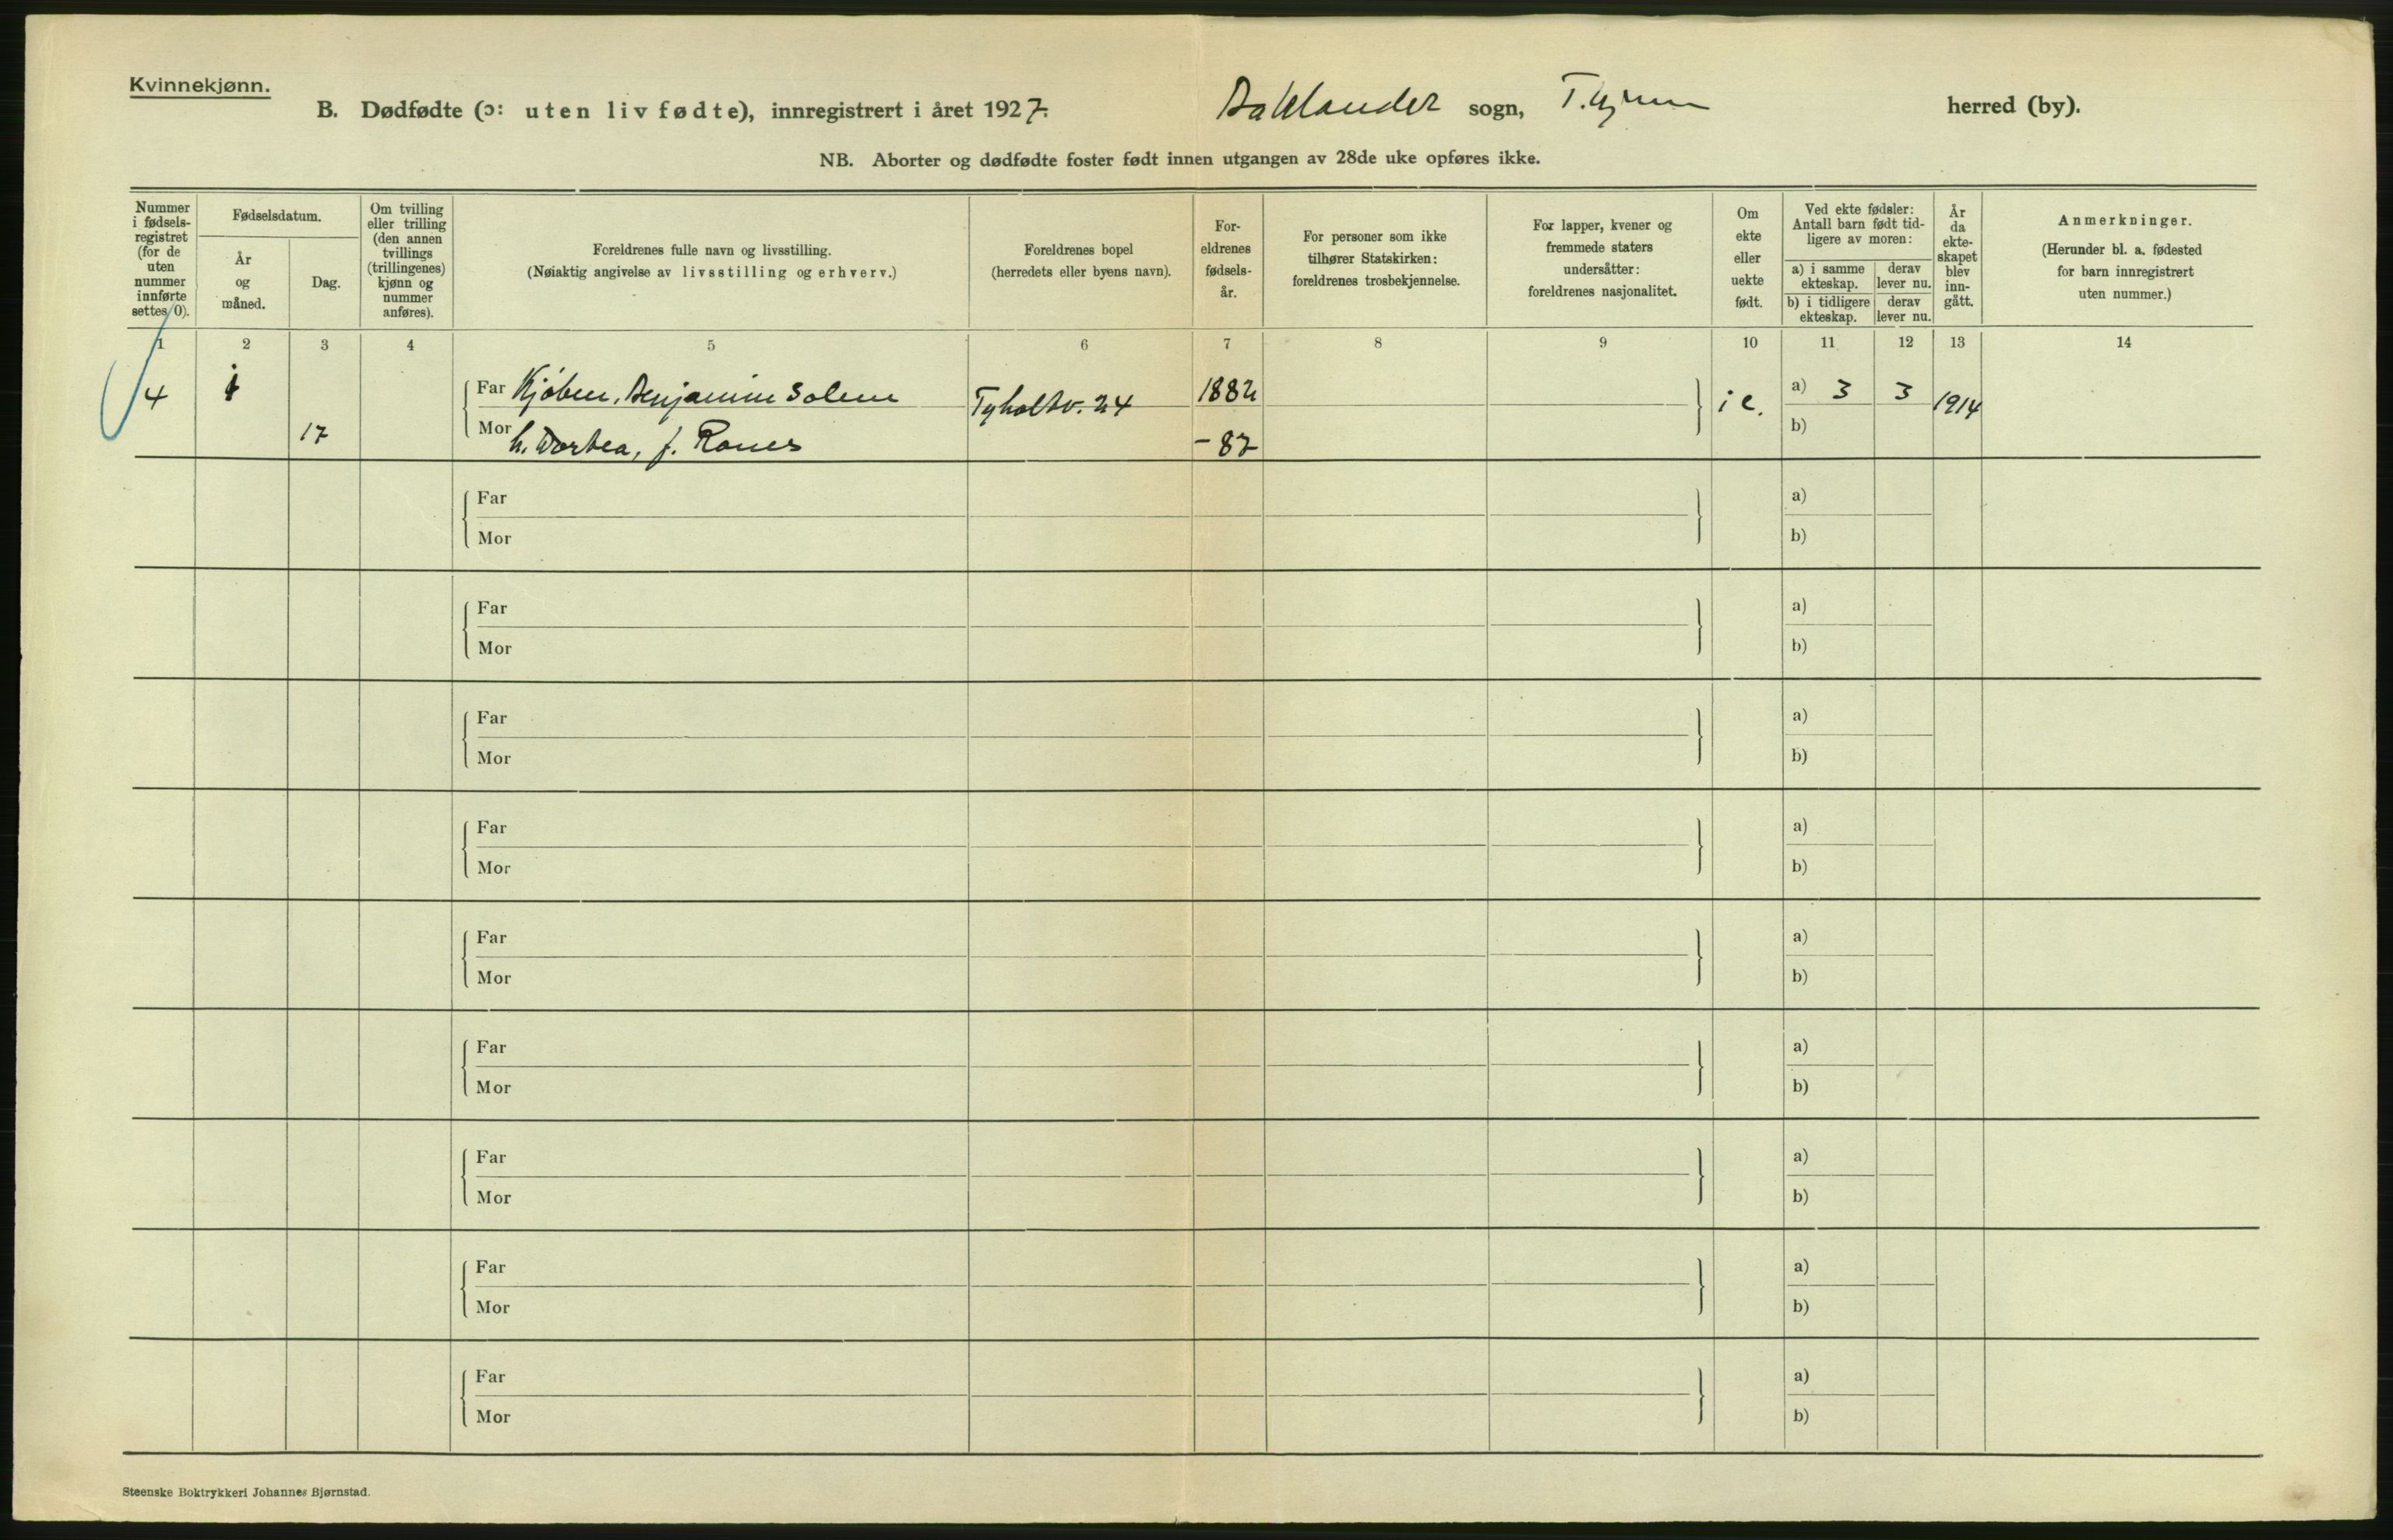 Kvinnekjønn.
B. Dødfødte (ɔ: uten liv fødte), innregistrert i året 1927. Baklandet sogn, T.hjem herred (by).
NB. Aborter og dødfødte foster født innen utgangen av 28de uke opføres ikke.
Nummer i fødsels-registret (for de uten nummer innførte settes 0).
Fødselsdatum.
År og måned.
Dag.
Om tvilling eller trilling (den annen tvillings (trillingenes) kjønn og nummer anføres).
Foreldrenes fulle navn og livsstilling.
(Nøiaktig angivelse av livsstilling og erhverv.)
Foreldrenes bopel
(herredets eller byens navn).
For-eldrenes fødsels-år.
For personer som ikke tilhører Statskirken: foreldrenes trosbekjennelse.
For lapper, kvener og fremmede staters undersåtter: foreldrenes nasjonalitet.
Om ekte eller uekte født.
Ved ekte fødsler: Antall barn født tid-ligere av moren:
a) i samme ekteskap.
derav lever nu.
b) i tidligere ekteskap.
derav lever nu.
År da ekte-skapet blev inn-gått.
Anmerkninger.
(Herunder bl. a. fødested for barn innregistrert uten nummer.)
1 2 3 4 5 6 7 8 9 10 11 12 13 14
4 Far Kjøbm. Benjamin Solem Tyholtv. 24 1882 i e. a) 3 3 1914
17 Mor h. Dorthea, f. Ranes - 87 b)
Far a)
Mor b)
Far a)
Mor b)
Far a)
Mor b)
Far a)
Mor b)
Far a)
Mor b)
Far a)
Mor b)
Far a)
Mor b)
Far a)
Mor b)
Far a)
Mor b)
Steenske Boktrykkeri Johannes Bjørnstad.